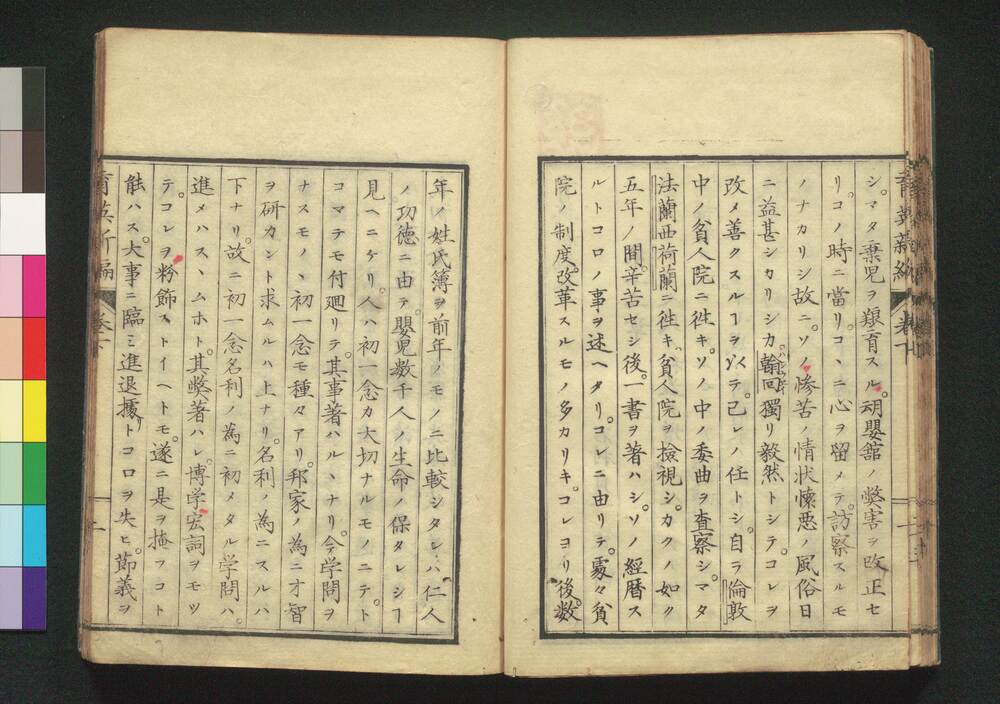 シ。マタ棄児ヲ艱育スル。幼嬰舘ノ獘害ヲ改正セ
リ。コノ時ニ當リ。コヽニ心ヲ留メテ。訪察スルモ
ノナカリシ故ニ。ソノ惨苦ノ情状懐悪ノ風俗日
ニ益甚シカリシカ。翰回獨リ毅然トシテ。コレヲ
改メ善クスルヿヲ以テ。己レノ任トシ。自ラ倫敦
中ノ貧人院ニ徃キ。ソノ中ノ委曲ヲ査察シ。マタ
法蘭西荷蘭ニ徃キ。貧人院ヲ撿視シ。カクノ如ク
五年ノ間。辛苦セシ後。一書ヲ著ハシ。ソノ經暦ス
ルトコロノ事ヲ述ヘタリ。コレニ由リテ。處々貧
院ノ制度。改革スルモノ多カリキ。コレヨリ後。数
年ノ姓氏簿ヲ前年ノモノニ比較シタレハ仁人
ノ功徳ニ由テ。嬰児数千人ノ生命ノ保タレシヿ
見ヘニケリ。人ハ初一念カ大切ナルモノニテト
コマテモ付廻リテ。其事著ハルヽナリ。今学問ヲ
ナスモノヽ初一念モ種々アリ。邦家ノ為ニオ智
ヲ研カント求ムルハ上ナリ。名利ノ為ニスルハ
下ナリ。故ニ初一念名利ノ為ニ初メタル学問ハ。
進メハスヽムホト。其獘著ハレ。博学宏詞ヲモツ
テコレヲ粉飾ストイヘトモ。遂ニ是ヲ掩フコト
能ハス。大事ニ臨ミ進退據トコロヲ失ヒ。節義ヲ